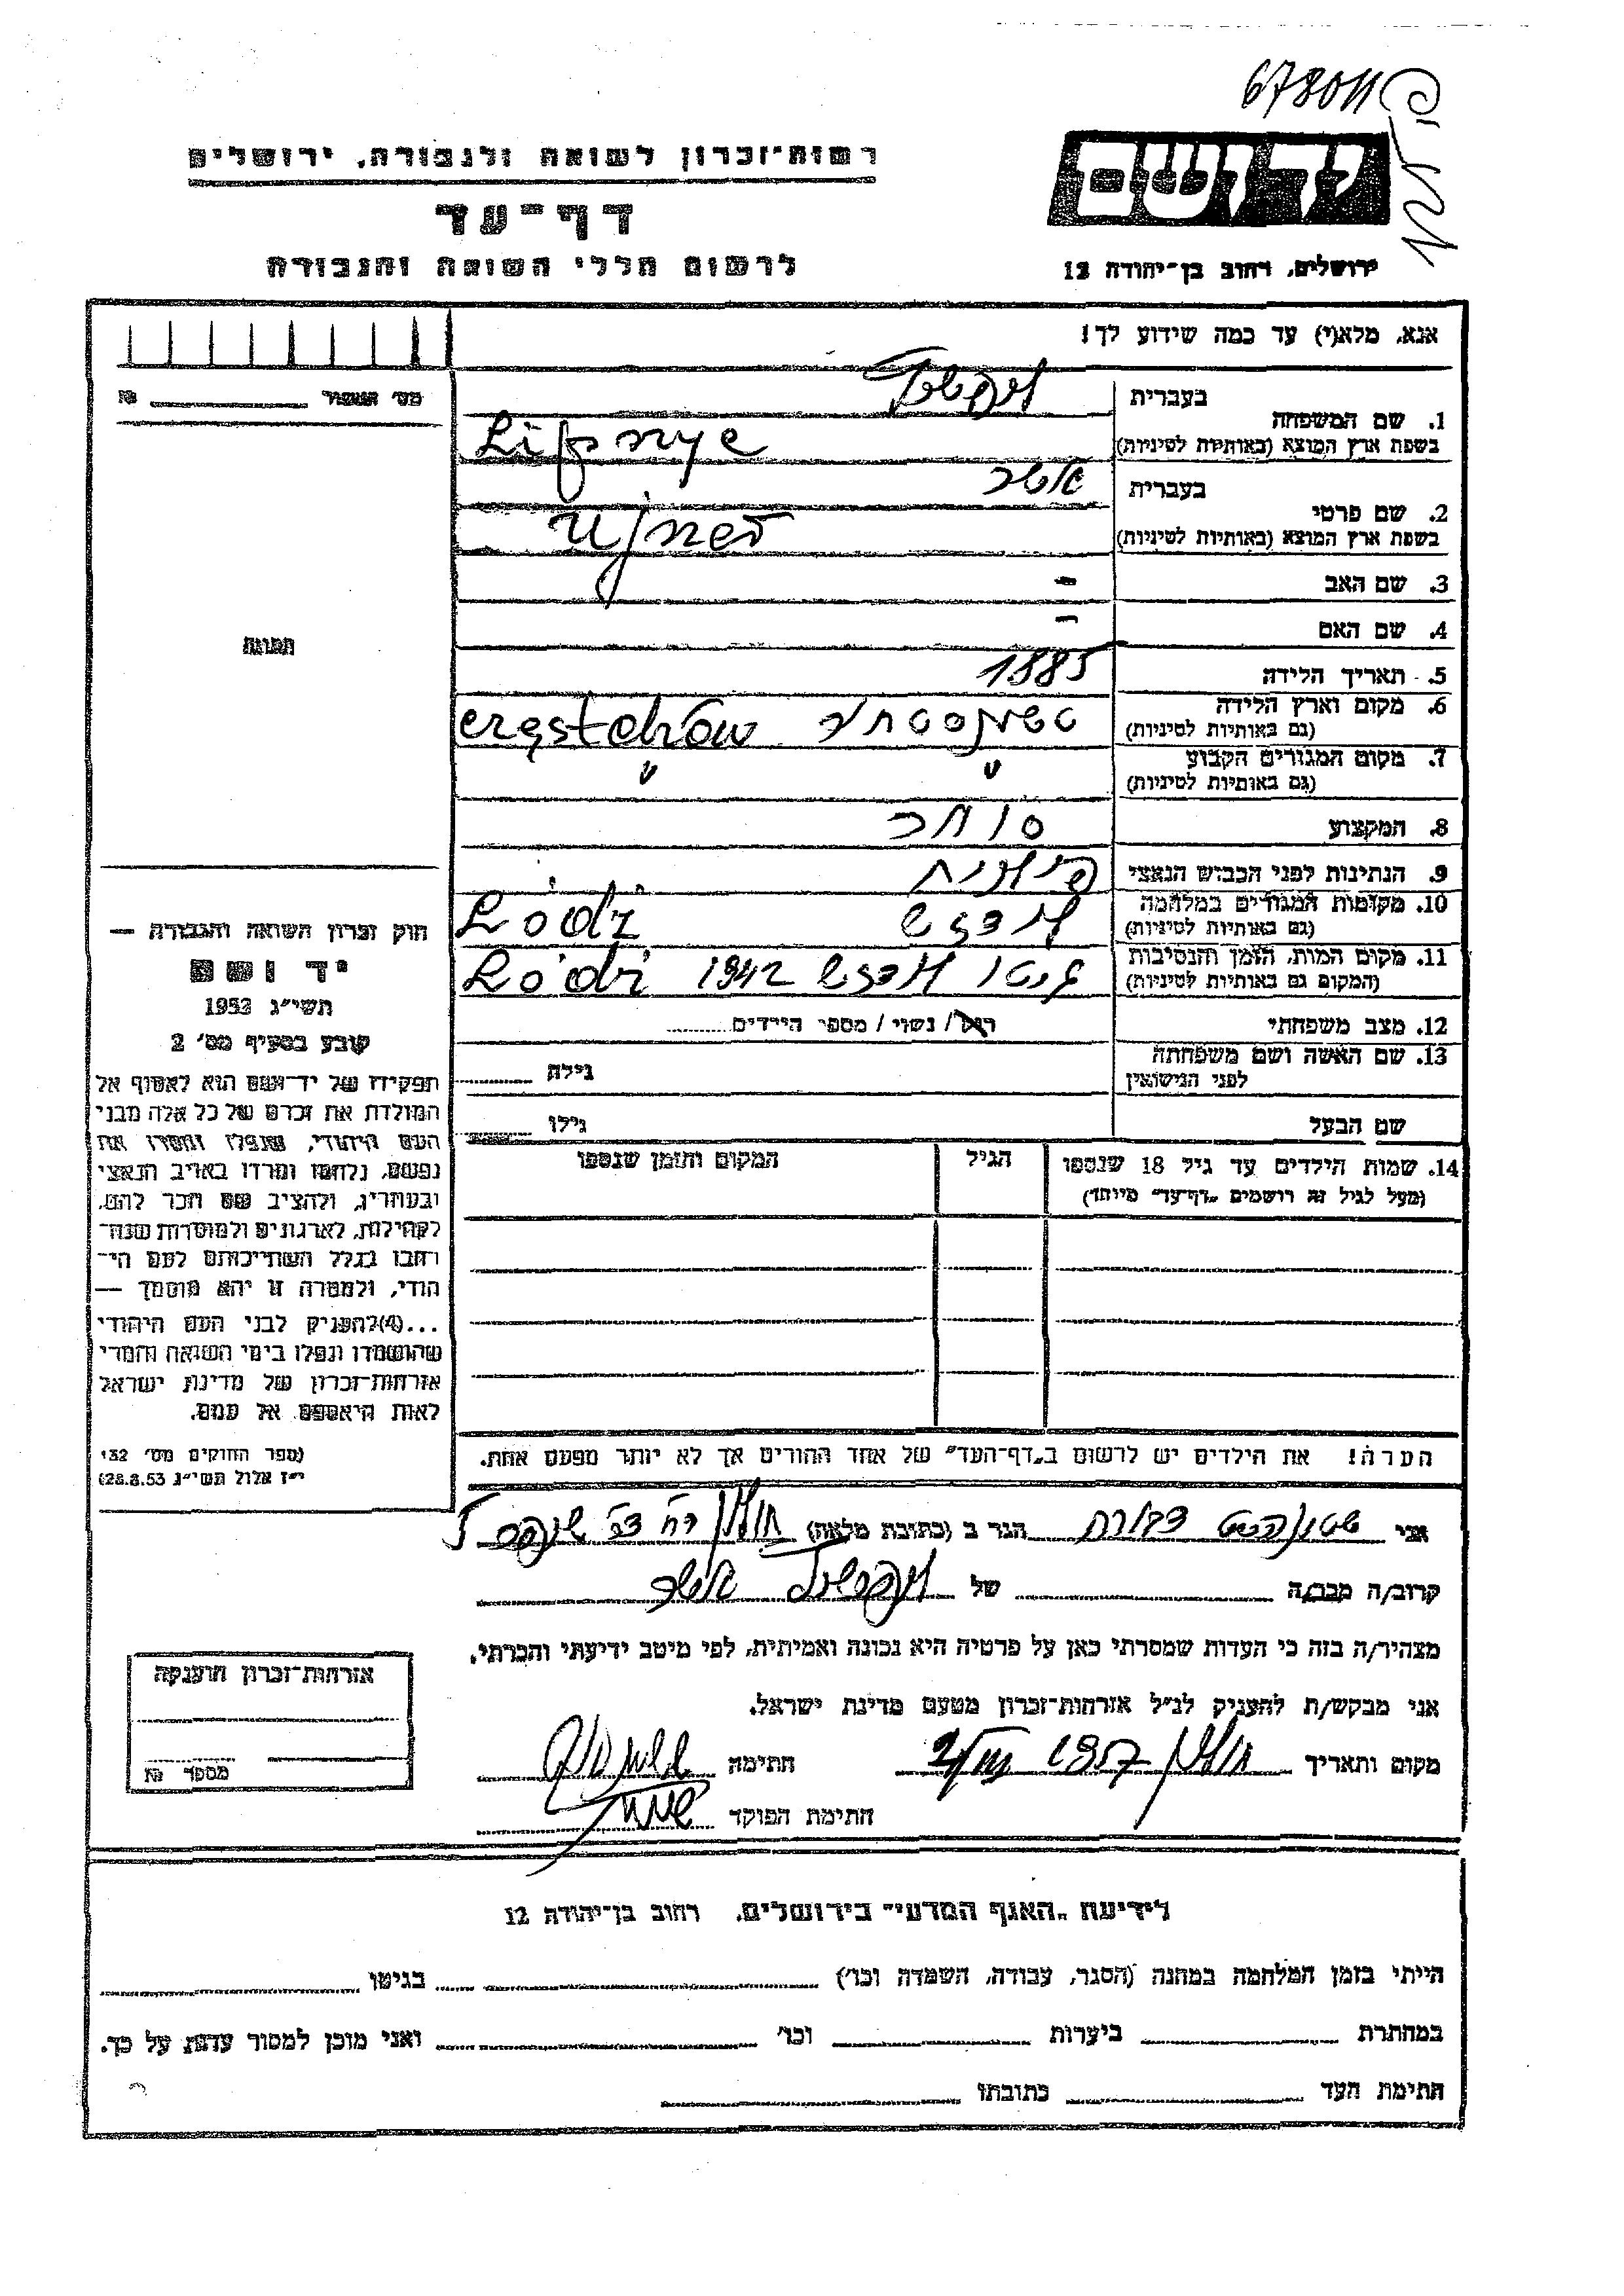 678011
רשות־זכרון לשואה ולגבורה, ירושלים
יד ושם
דף־עד
לרשום חללי השואה והגבורה
ירושלים, רחוב בן־יהודה 12
אנא, מלא(י) עד כמה שידוע לך!
מס׳ השפור №
1. שם המשפחה
בעברית
בשפת ארץ המוצא (באותיות לטיניות) Lipnye
2. שם פרטי
בעברית אשר
בשפת ארץ המוצא (באותיות לטיניות) Ujner
3. שם האב -
4. שם האם -
5. תאריך הלידה 1885
6. מקום וארץ הלידה
(גם באותיות לטיניות) טשנסטחב częstchów
7. מקום המגורים הקבוע
(גם באותיות לטיניות) " "
8. המקצוע סוחר
9. הנתינות לפני הכבוש הנאצי פולנית
10. מקומות המגורים במלחמה
(גם באותיות לטיניות) לודז׳ Łódź
11. מקום המות, הזמן והנסיבות
(המקום גם באותיות לטיניות) גטו 1942 Łódź
12. מצב משפחתי רווק / נשוי / מספר הילדים
13. שם האשה ושם משפחתה
לפני הנישואין גילה
שם הבעל גילו
14. שמות הילדים עד גיל 18 שנספו
(מעל לגיל זה רושמים „דף־עד״ מיוחד)
הגיל
המקום והזמן שנספו
הערה! את הילדים יש לרשום ב„דף־העד״ של אחד ההורים אך לא יותר מפעם אחת.
תמונה
חוק זכרון השואה והגבורה —
יד ושם
תשי״ג 1953
קובע בסעיף מס׳ 2
תפקידו של יד־ושם הוא לאסוף אל
המולדת את זכרם של כל אלה מבני
העם היהודי, שנפלו ומסרו את
נפשם, נלחמו ומרדו באויב הנאצי
ובעוזריו, ולהציב שם וזכר להם,
לקהילות, לארגונים ולמוסדות שנח־
רבו בגלל השתייכותם לעם הי־
הודי, ולמטרה זו יהא מוסמך —
...(4) להעניק לבני העם היהודי
שהושמדו ונפלו בימי השואה והמרי
אזרחות־זכרון של מדינת ישראל
לאות היאספם אל עמם.
(ספר החוקים מס׳ 132
י״ז אלול תשי״ג 28.8.53)
אני הגר ב (כתובת מלאה) חולון
קרוב/ה מכר/ה של אשר
מצהיר/ה בזה כי העדות שמסרתי כאן על פרטיה היא נכונה ואמיתית, לפי מיטב ידיעתי והכרתי.
אני מבקש/ת להעניק לנ״ל אזרחות־זכרון מטעם מדינת ישראל.
מקום ותאריך חולון 1957 חתימה
חתימת הפוקד
אזרחות־זכרון הוענקה
מספר №
לידיעת „האגף המדעי״ בירושלים, רחוב בן־יהודה 12
הייתי בזמן המלחמה במחנה (הסגר, עבודה, השמדה וכו׳) בגיטו
במחתרת ביערות וכו׳ ואני מוכן למסור עדות על כך.
חתימת העד כתובתו